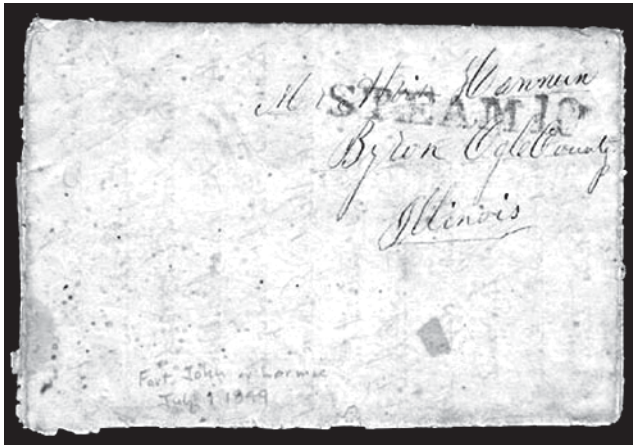 Mr Hannum
STEAM 10
Byron Ogle County
Illinois
Fort John or Larmie
July 1 1849